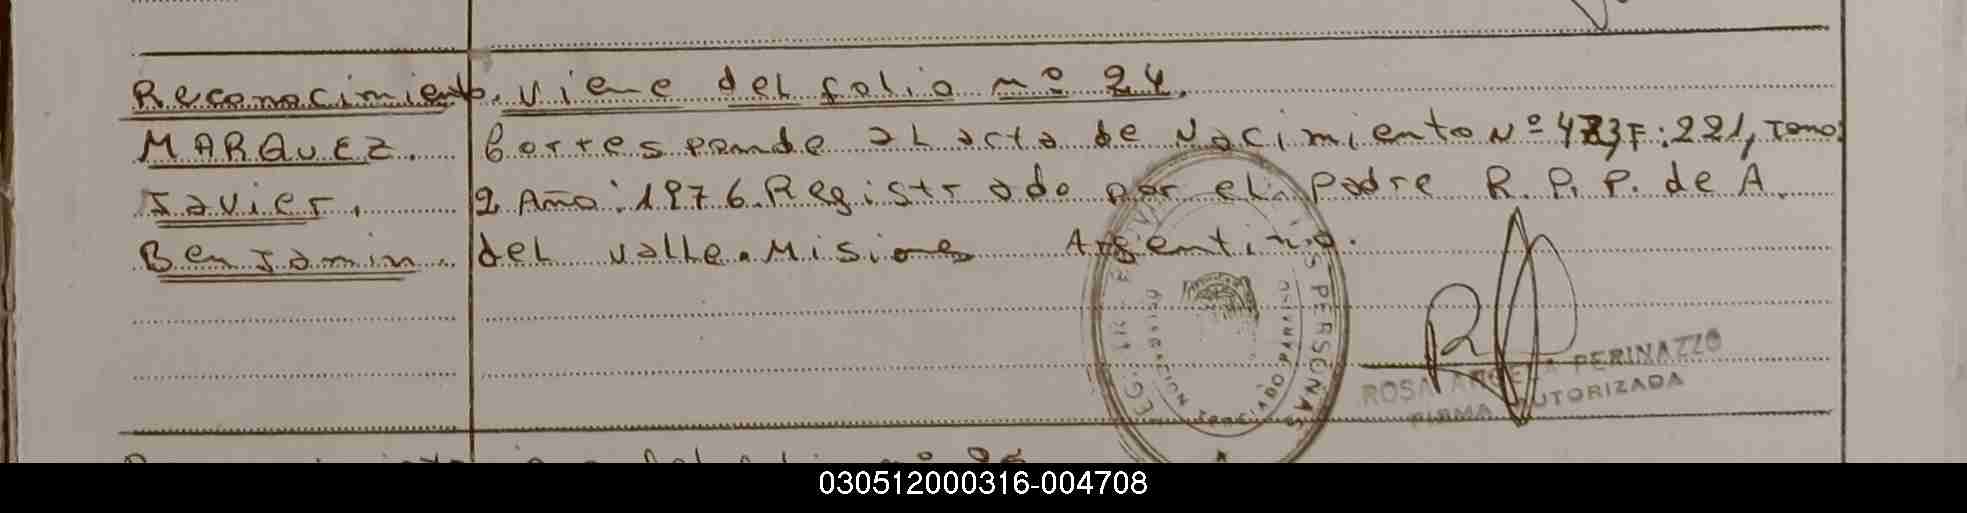 Reconocimiento. viene del folio nº 24.
MARQUEZ. Corresponde al acta de Nacimiento Nº F: 221, Tomo:
Javier. 2 Año: 1976. Registrado por el Padre R. P. P. de A.
Benjamin. del valle. Misiones Argentina.
PERSONAS
ROSA ANGELA PERINAZZO
FIRMA AUTORIZADA
030512000316-004708